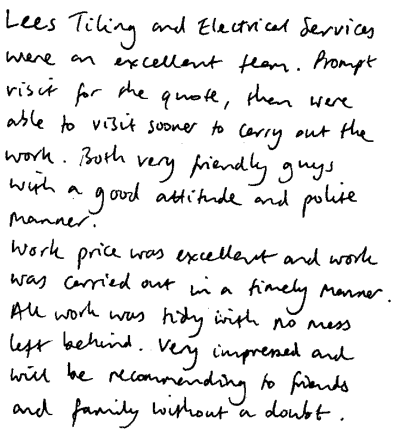 Lees Tiling and Electrical Services
were an excellent team. Prompt
visit for the quote, then were
able to visit sooner to carry out the
work. Both very friendly guys
with a good attitude and polite
manner.
Work price was excellent and work
was carried out in a timely manner.
All work was tidy with no mess
left behind. Very impressed and
will be recommending to friends
and family without a doubt.